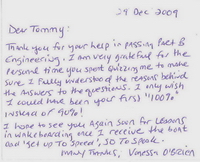 29 Dec 2009
Dear Tommy:
Thank you for your help in passing Part B
Engineering. I am very grateful for the
personal time you spent quizzing me to make
sure I fully understood the reasons behind
the answers to the questions. I only wish
I could have been your first "100%"
instead of 90%!
I hope to see you again soon for lessons
in wakeboarding once I receive the boat
and "get up to speed", so to speak.
Many Thanks, Vanessa O'Brien